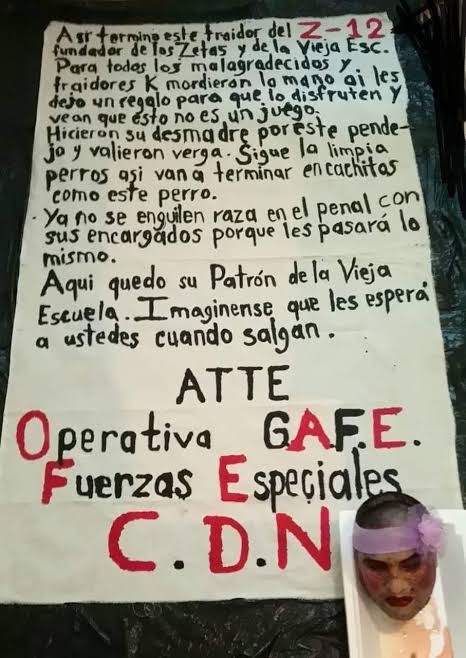 Así termino este traidor del Z-12
fundador de los Zetas y de la Vieja Esc.
Para todos los malagradecidos y
traidores K mordieron la mano ai les
dejo un regalo para que lo disfruten y
vean que esto no es un juego.
Hicieron su desmadre por este pende-
jo y valieron verga. Sigue la limpia
perros asi van a terminar en cachitos
como este perro.
. Ya no se enguilen raza en el penal con
sus encargados porque les pasará lo
mismo.
Aqui quedo su Patrón de la Vieja
Escuela. Imaginense que les esperá
a ustedes cuando salgan.
ATTE
Operativa G.A.F.E.
Fuerzas Especiales
C.D.N